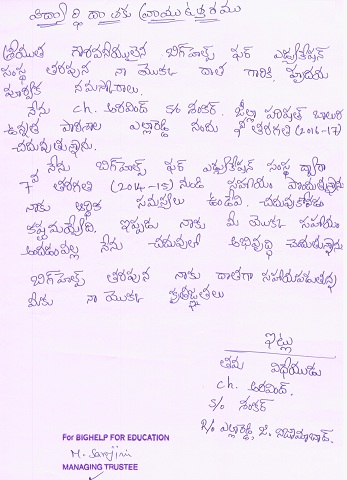 విద్యార్థి దాతకు వ్రాయు ఉత్తరము
శ్రీయుత గౌరవనీయులైన బిగ్‌హెల్ప్ ఫర్ ఎడ్యుకేషన్
సంస్థ తరపున నా యొక్క దాత గారికి హృదయ
పూర్వక నమస్కారాలు.
నేను ch. అరవింద్ s/o శంకర్. జిల్లా పరిషత్ బాలుర
ఉన్నత పాఠశాల ఎల్లారెడ్డి నందు 9వ తరగతి (2016-17)
చదువుతున్నాను.
నేను బిగ్‌హెల్ప్ ఫర్ ఎడ్యుకేషన్ సంస్థ ద్వారా
7వ తరగతి (2014-15) నుండి సహాయం పొందుతున్నాను
నాకు ఆర్థిక సమస్యలు ఉండేవి. చదువుకోవడం
కష్టమయ్యేది. ఇప్పుడు నాకు మీ యొక్క సహాయం
అందడం వల్ల నేను చదువులో అభివృద్ధి చెందుతున్నాను
బిగ్‌హెల్ప్ తరపున నాకు దాతగా సహాయపడుతున్న
మీకు నా యొక్క కృతజ్ఞతలు
ఇట్లు
తమ విధేయుడు
ch. అరవింద్.
s/o శంకర్
R/o ఎల్లారెడ్డి, జి. నిజామాబాద్.
For BIGHELP FOR EDUCATION
M. Sarojini
MANAGING TRUSTEE